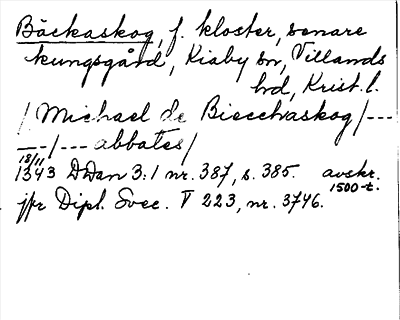 Bäckaskog, f. kloster, senare
kungsgård, Kiaby sn, Villands
hd, Krist. l.
/ Michael de Biecchaskog / ---
--- / --- abbates /
18/11
1343 DDan 3:1 nr. 387, s. 385. avskr.
1500-t.
jfr Dipl. Svec. V 223, nr. 3746.